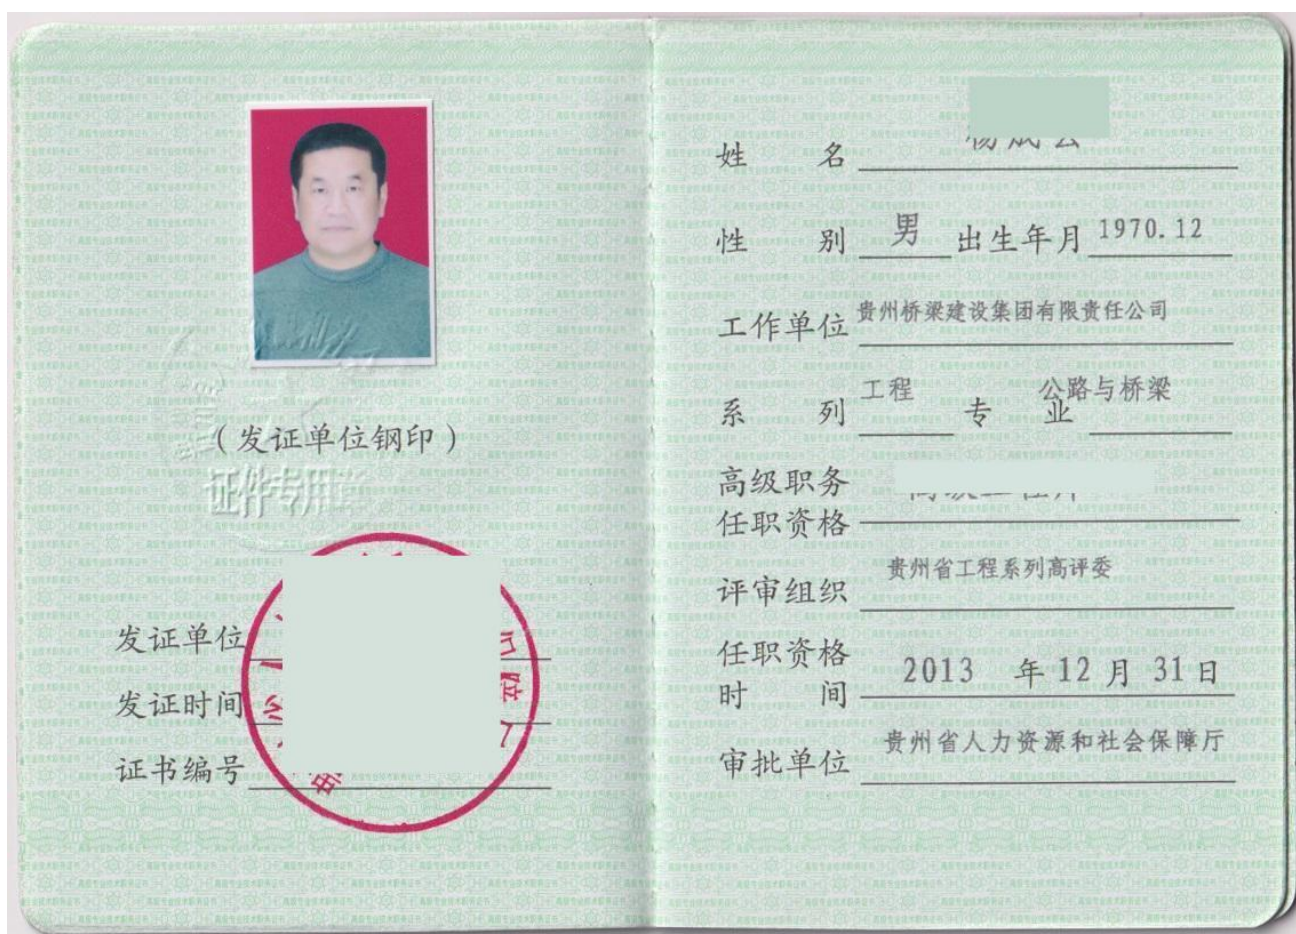 （发证单位钢印）
证件专用章
发证单位
发证时间
证书编号
姓 名
性 别 男 出生年月 1970.12
工作单位 贵州桥梁建设集团有限责任公司
系 列 工程 专 业 公路与桥梁
高级职务
任职资格
评审组织 贵州省工程系列高评委
任职资格
时 间 2013 年 12 月 31 日
审批单位 贵州省人力资源和社会保障厅